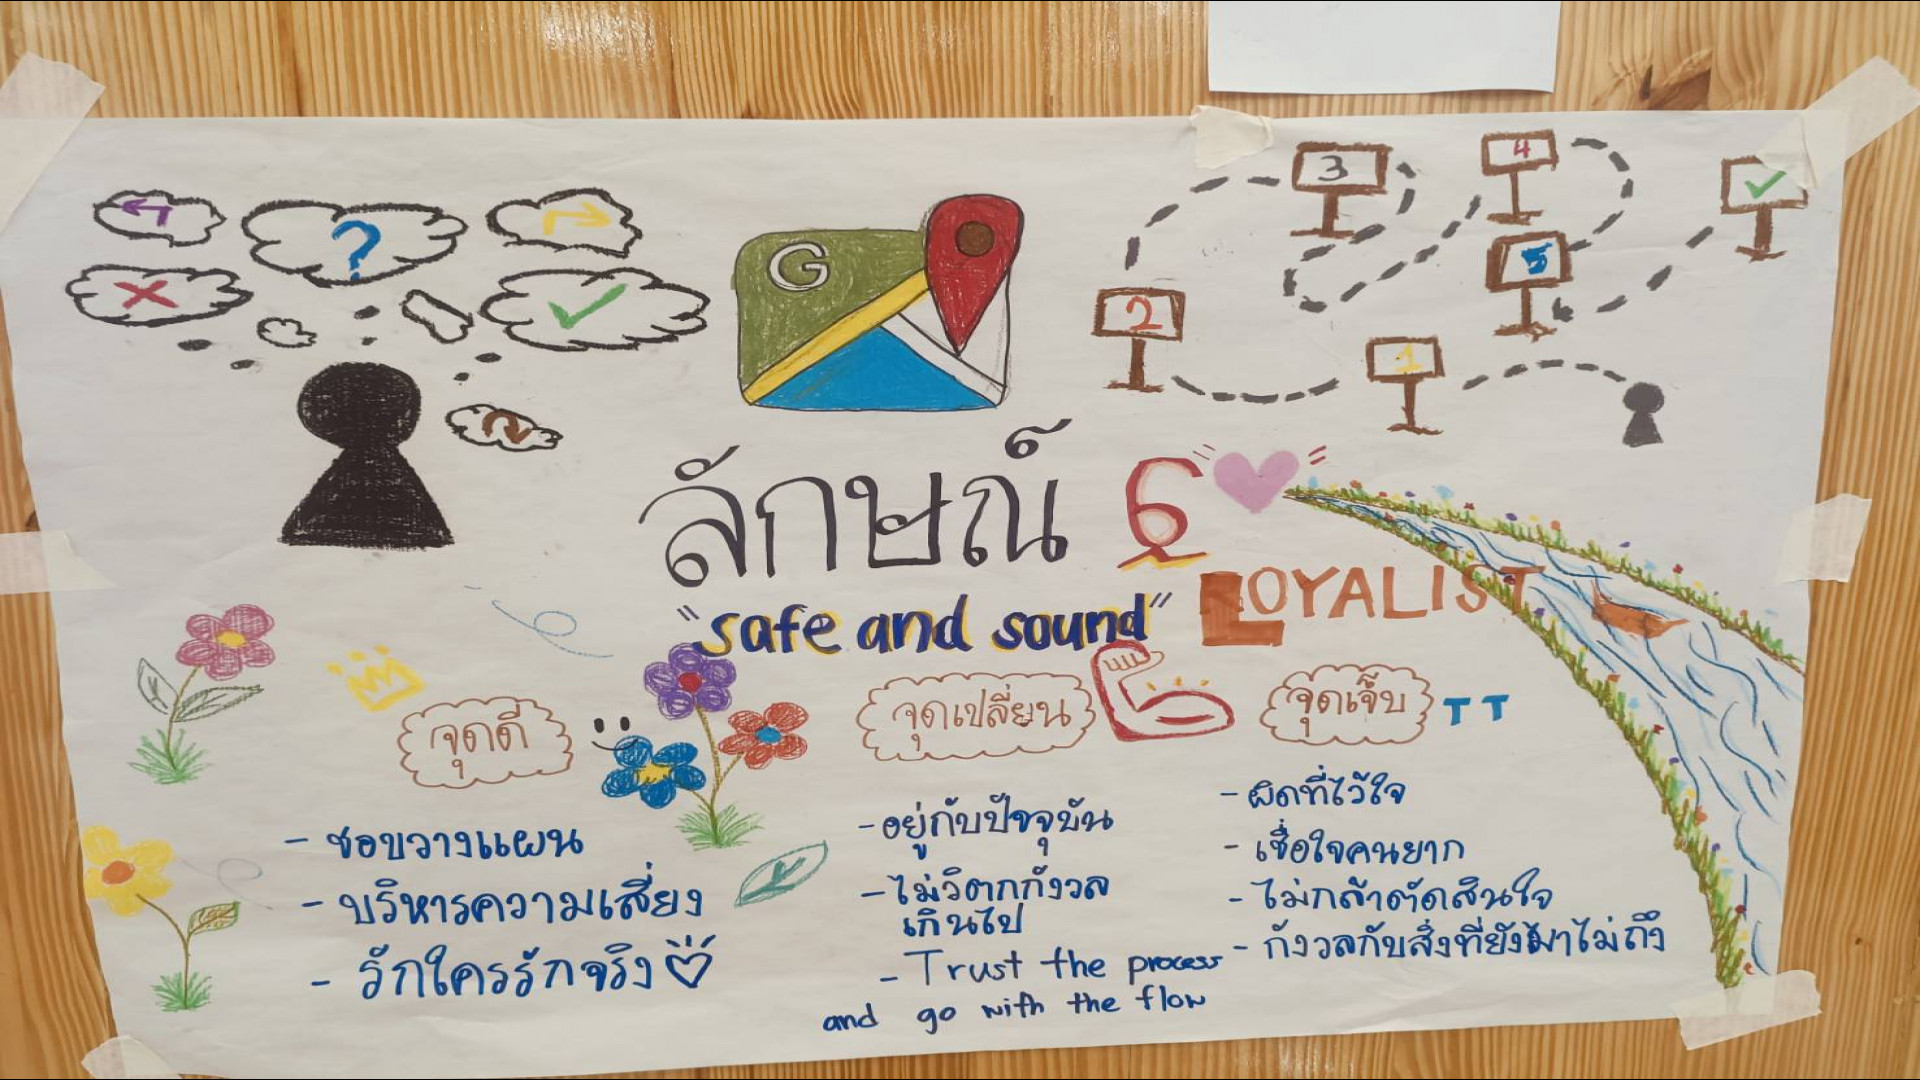 ?
G
3
4
2
5
1
ลักษณ์ 6
"safe and sound"
LOYALIST
จุดดี
- ชอบวางแผน
- บริหารความเสี่ยง
- รักใครรักจริง
จุดเปลี่ยน
- อยู่กับปัจจุบัน
- ไม่วิตกกังวล
เกินไป
- Trust the process
and go with the flow
จุดเจ็บ TT
- ผิดที่ไว้ใจ
- เชื่อใจคนยาก
- ไม่กล้าตัดสินใจ
- กังวลกับสิ่งที่ยังมาไม่ถึง